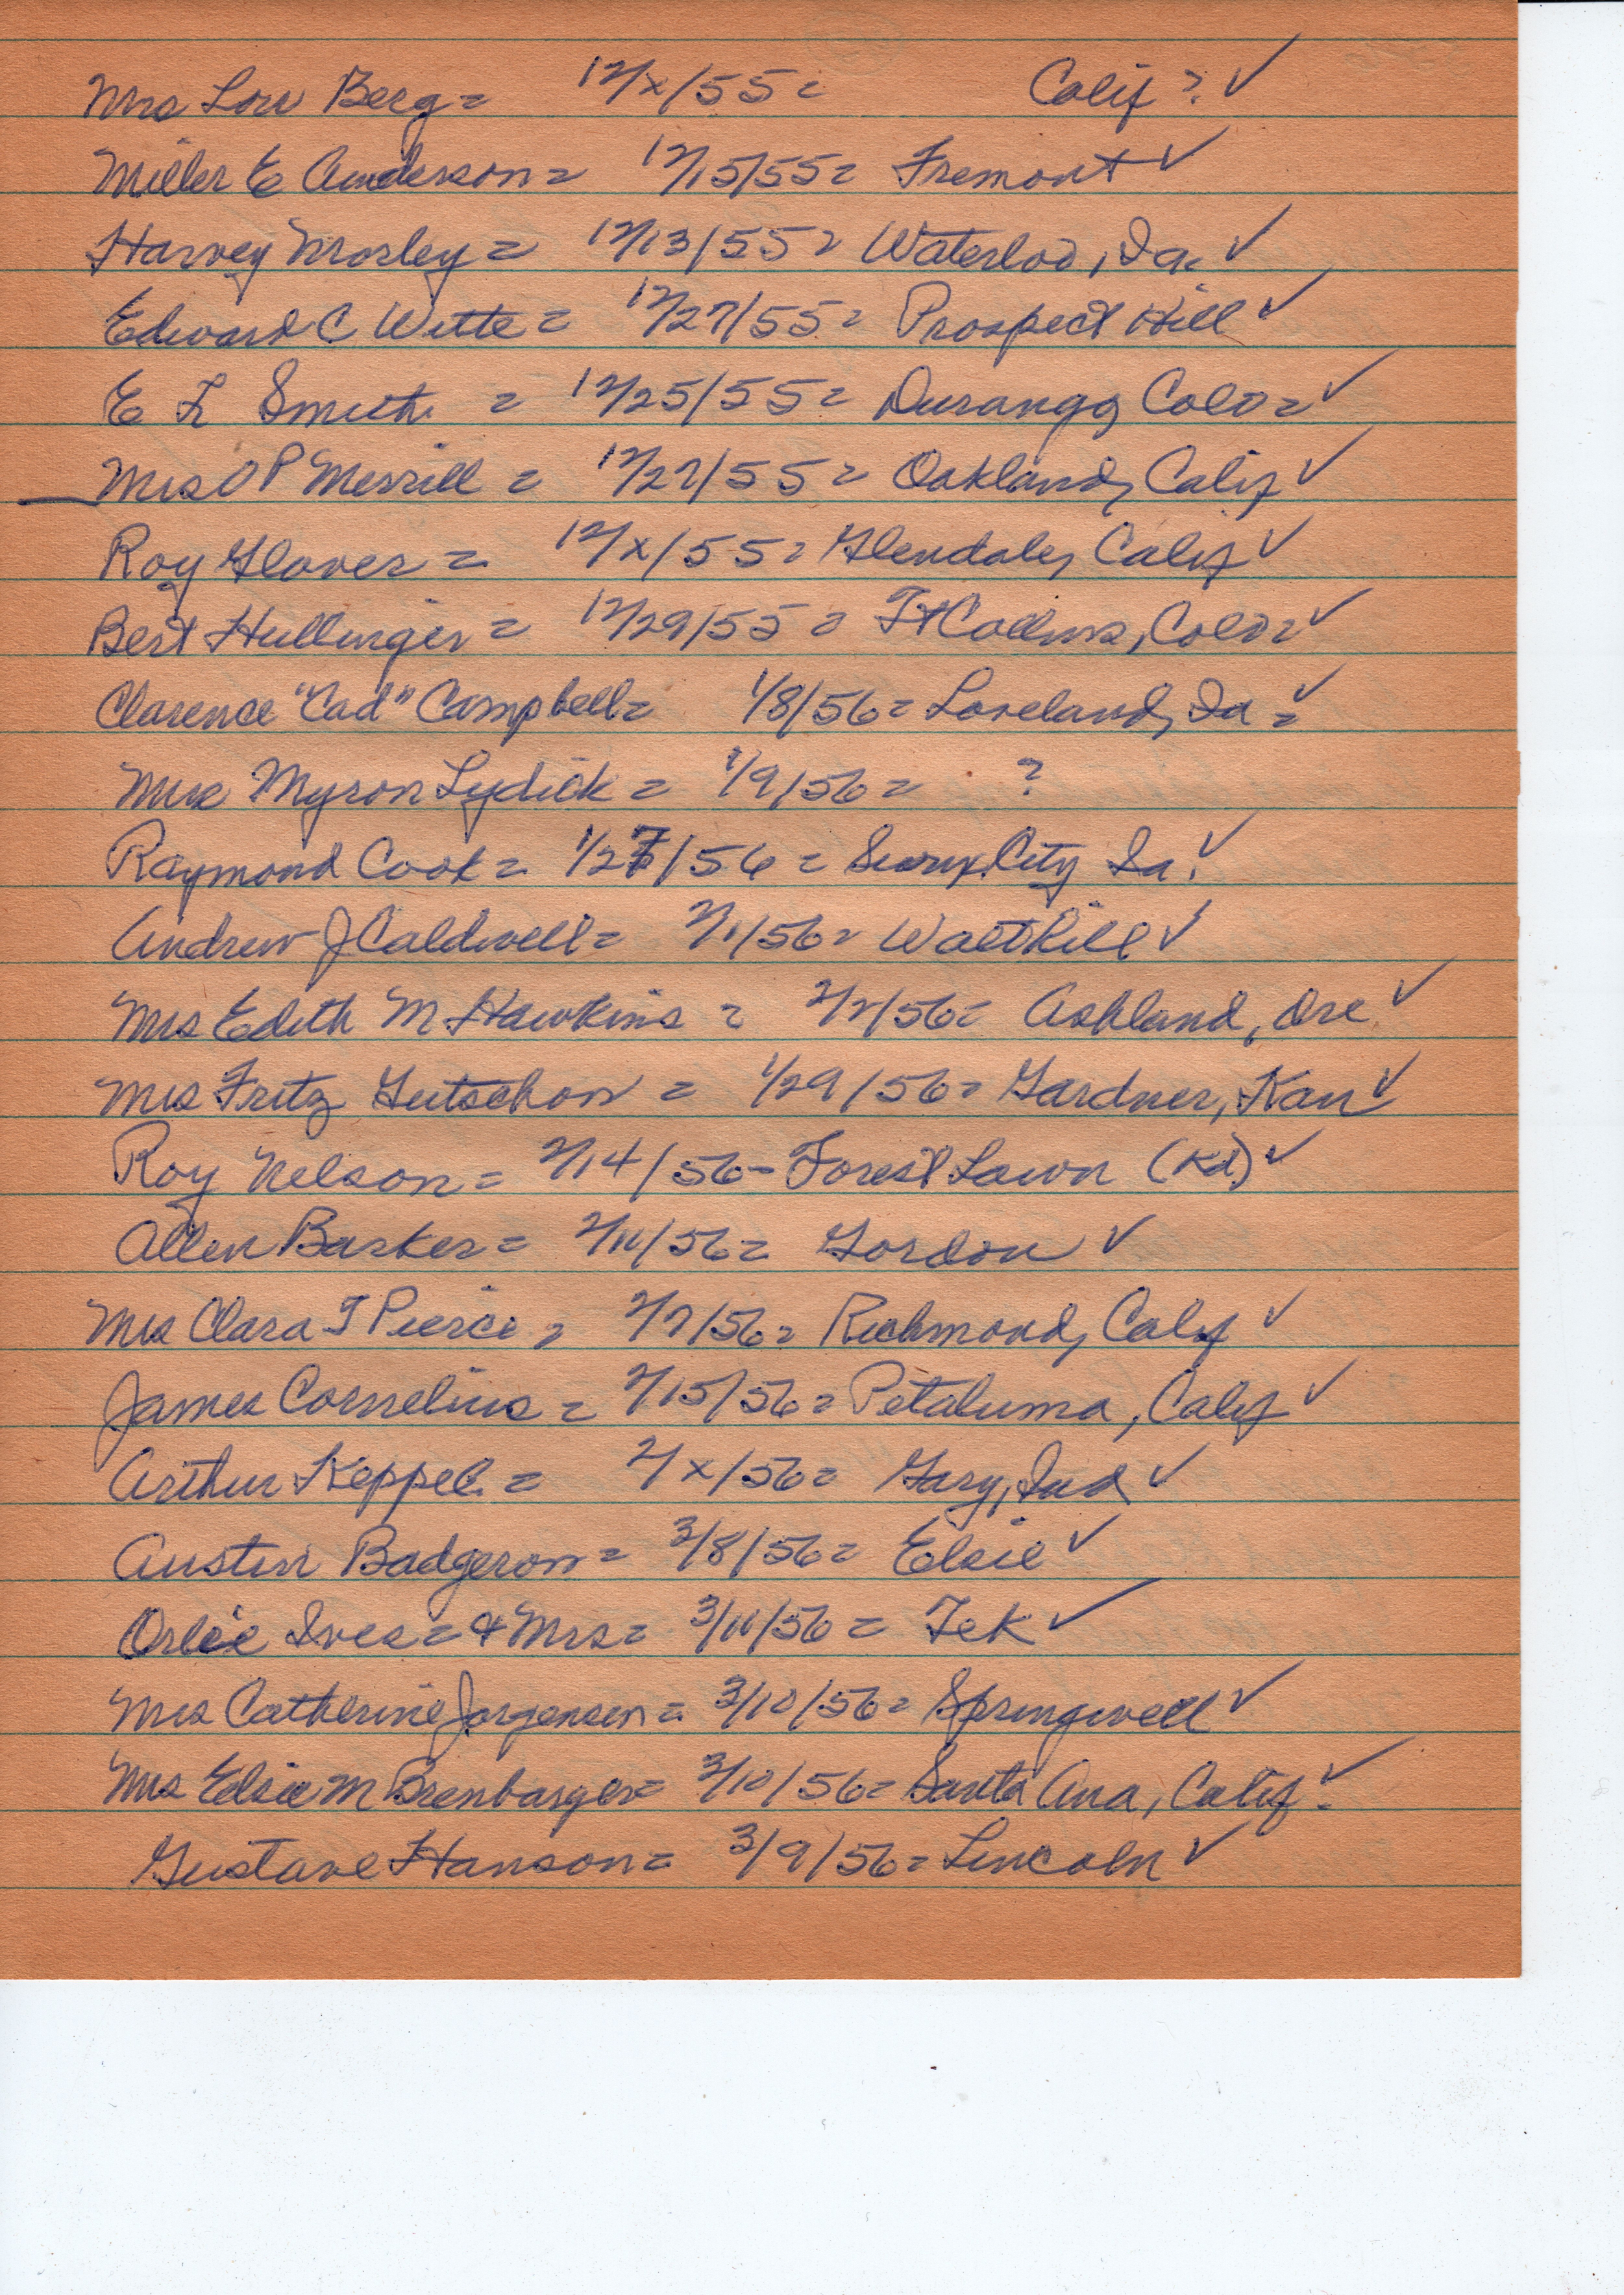 Mrs Lou Berg = 12/x/55 = Calif ? ✓
Miller E Anderson = 12/15/55 = Fremont ✓
Harvey Mosley = 12/13/55 = Waterloo, Ia. ✓
Edward C Witte = 12/27/55 = Prospect Hill ✓
E L Smith = 12/25/55 = Durango, Colo = ✓
Mrs O P Merrill = 12/27/55 = Oakland, Calif ✓
Roy Glover = 12/x/55 = Glendale, Calif ✓
Bert Hullinger = 12/29/55 = Ft Collins, Colo = ✓
Clarence "Cad" Campbell = 1/8/56 = Loveland, Ia = ✓
Mrs Myron Lydick = 1/9/56 = ?
Raymond Cook = 1/27/56 = Sioux City Ia. ✓
Andrew J Caldwell = 2/1/56 = Walthill ✓
Mrs Edith M Hawkins = 2/2/56 = Ashland, Ore ✓
Mrs Fritz Gutschow = 1/29/56 = Gardner, Kan ✓
Roy Nelson = 2/14/56 - Forest Lawn (Kd) ✓
Allen Barker = 2/11/56 = Gordon ✓
Mrs Clara T Pierce = 2/7/56 = Richmond, Calif ✓
James Cornelius = 2/15/56 = Petaluma, Calif ✓
Arthur Keppel = 2/x/56 = Gary, Ind ✓
Austin Badgerow = 3/8/56 = Elsie ✓
Orlie Ives = & Mrs = 3/11/56 = Tek ✓
Mrs Catherine Jorgensen = 3/10/56 = Springwell ✓
Mrs Elsie M Brenbarger = 3/10/56 = Santa Ana, Calif. ✓
Gustave Hanson = 3/9/56 = Lincoln ✓